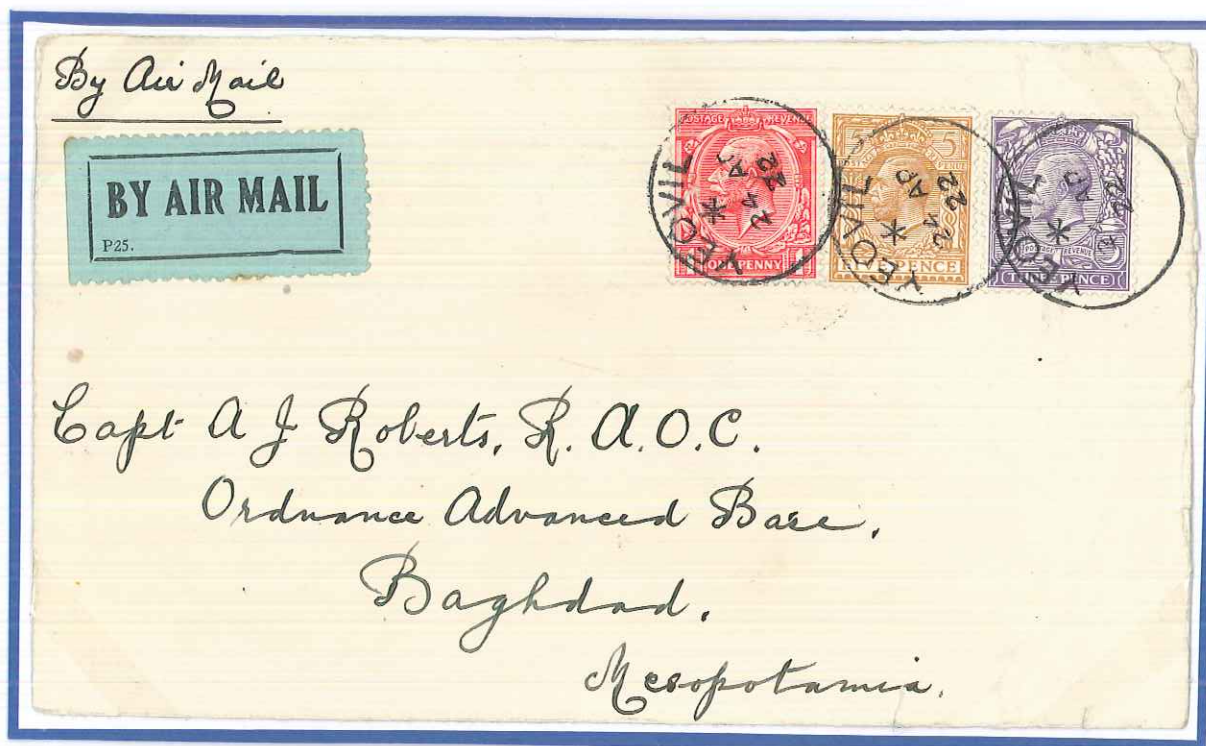 By Air Mail
BY AIR MAIL
P25.
POSTAGE REVENUE
ONE PENNY
YEOVIL
24 AP
22
5
FIVE PENCE
YEOVIL
24 AP
22
POSTAGE REVENUE
THREE PENCE
YEOVIL
AP
22
Capt A J Roberts, R.A.O.C.
Ordnance Advanced Base,
Baghdad,
Mesopotamia.